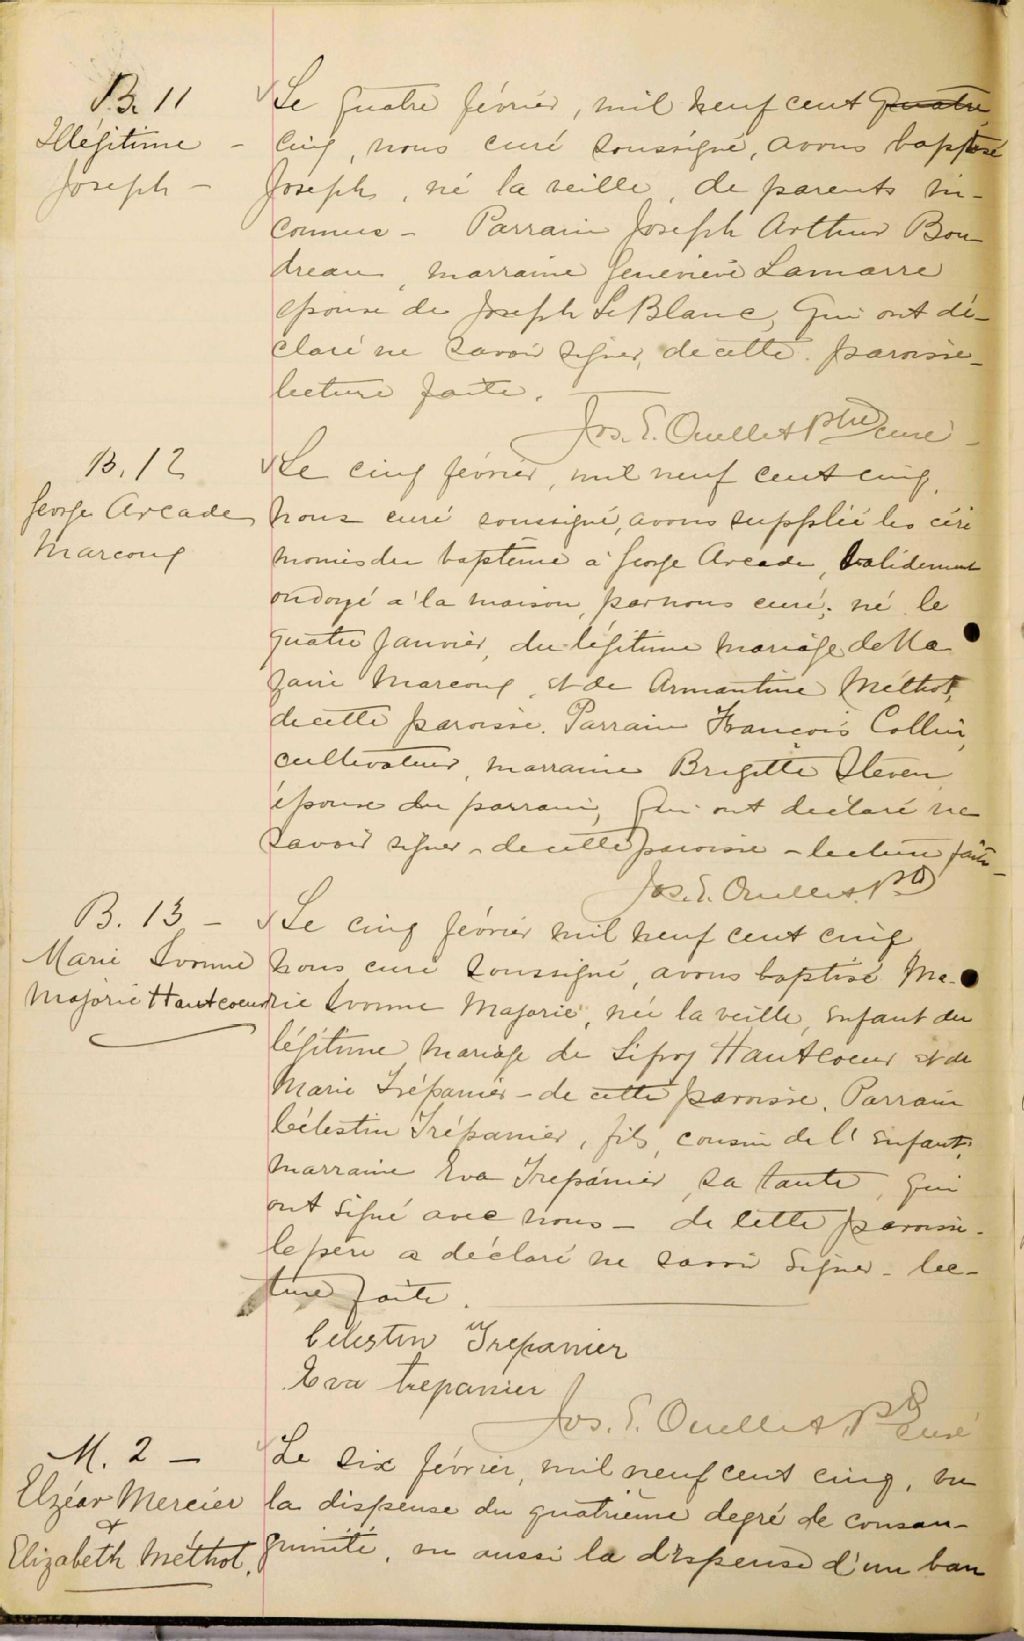 B. 11
Illégitime -
Joseph -
Le quatre février, mil neuf cent quatre
cinq, nous curé soussigné, avons baptisé
Joseph, né la veille, de parents in-
connus - Parrain Joseph Arthur Bou-
dreau, marraine Geneviève Lamarre
épouse de Joseph LeBlanc, qui ont dé-
claré ne savoir signer, de cette paroisse -
lecture faite.
Jos. E. Ouellet Ptre curé -
B. 12
George Arcade
Marcoux
Le cinq février, mil neuf cent cinq,
nous curé soussigné, avons suppléé les céré
monies du baptême à George Arcade, validement
ondoyé à la maison, par nous curé; né le
quatre janvier, du légitime mariage de Na
zaire Marcoux, et de Armantine Méthot,
de cette paroisse. Parrain François Collin,
cultivateur, marraine Brigitte Steven
épouse du parrain, qui ont déclaré ne
savoir signer - de cette paroisse - lecture faite -
Jos. E. Ouellet Ptre
B. 13 -
Marie Ivonne
Majorie Hautcoeur
Le cinq février mil neuf cent cinq
nous curé soussigné, avons baptisé Ma-
rie Ivonne Majorie, née la veille, enfant du
légitime mariage de Sifroy Hautcoeur et de
Marie Trépanier - de cette paroisse. Parrain
Célestin Trépanier, fils, cousin de l'enfant,
marraine Eva Trepánier, sa tante, qui
ont signé avec nous - de cette paroisse -
le père a déclaré ne savoir signer - lec-
ture faite.
Célestin Trepanier
Eva trepanier
Jos. E. Ouellet, Ptre curé
M. 2 -
Elzéar Mercier
&
Elizabeth Méthot.
Le six février, mil neuf cent cinq, vu
la dispense du quatrième degré de consan-
guinité, vu aussi la dispense d'un ban